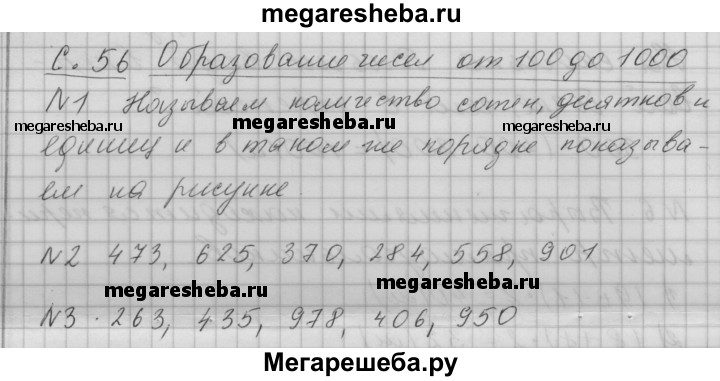 megaresheba.ru
С. 56 Образование чисел от 100 до 1000
N1 Называем количество сотен, десятков и
megaresheba.ru megaresheba.ru megaresheba.ru
единиц и в таком же порядке показыва-
ем на рисунке.
N2 473, 625, 370, 284, 558, 901
megaresheba.ru megaresheba.ru
N3. 263, 435, 978, 406, 950
Мегарешеба.ру